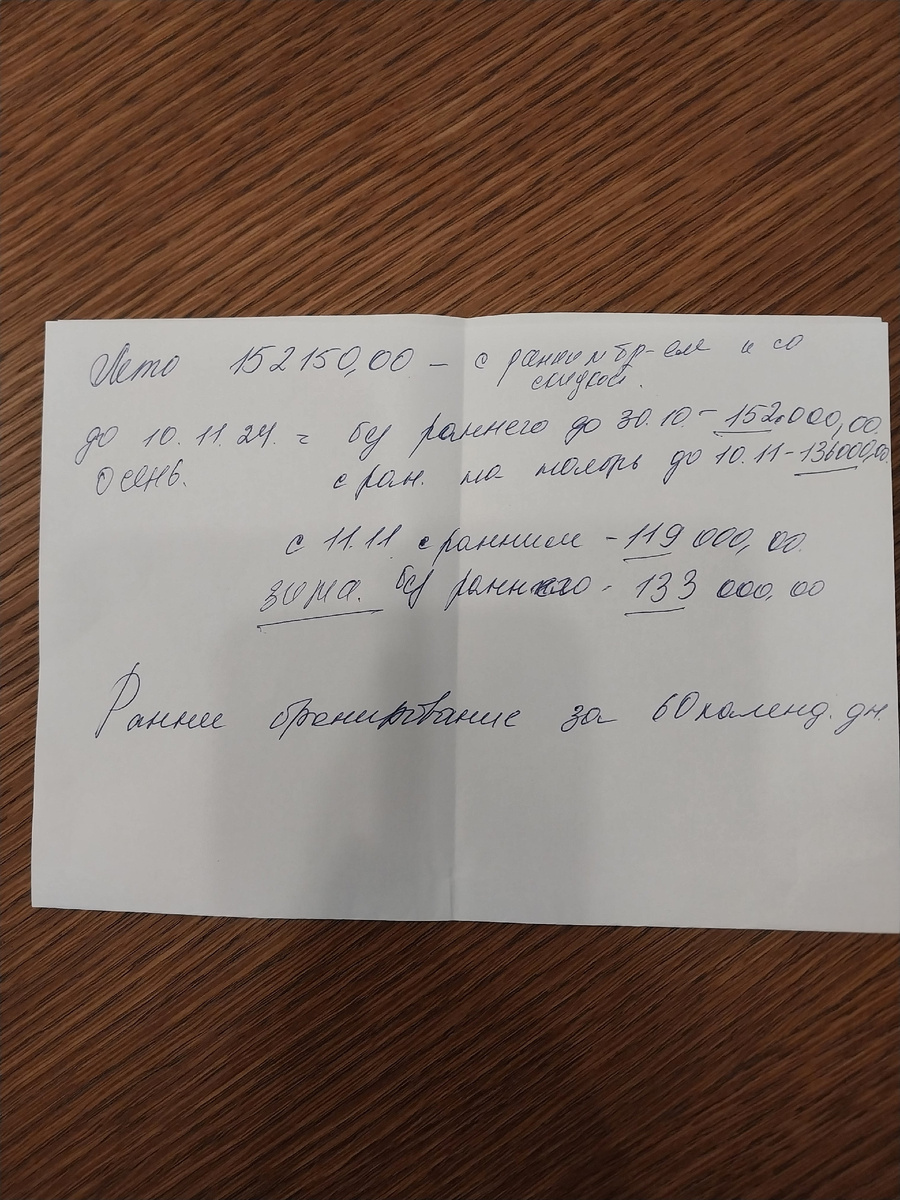 Лето 152150,00 – с ранним бр-ем и со
скидкой.
до 10.11.24. = без раннего до 30.10. – 152.000,00.
осень. с ран. на ноябрь до 10.11 – 136000,00.
с 11.11 с ранним – 119 000,00.
зима. без раннего - 133 000,00
Раннее бронирование за 60 календ. дн.